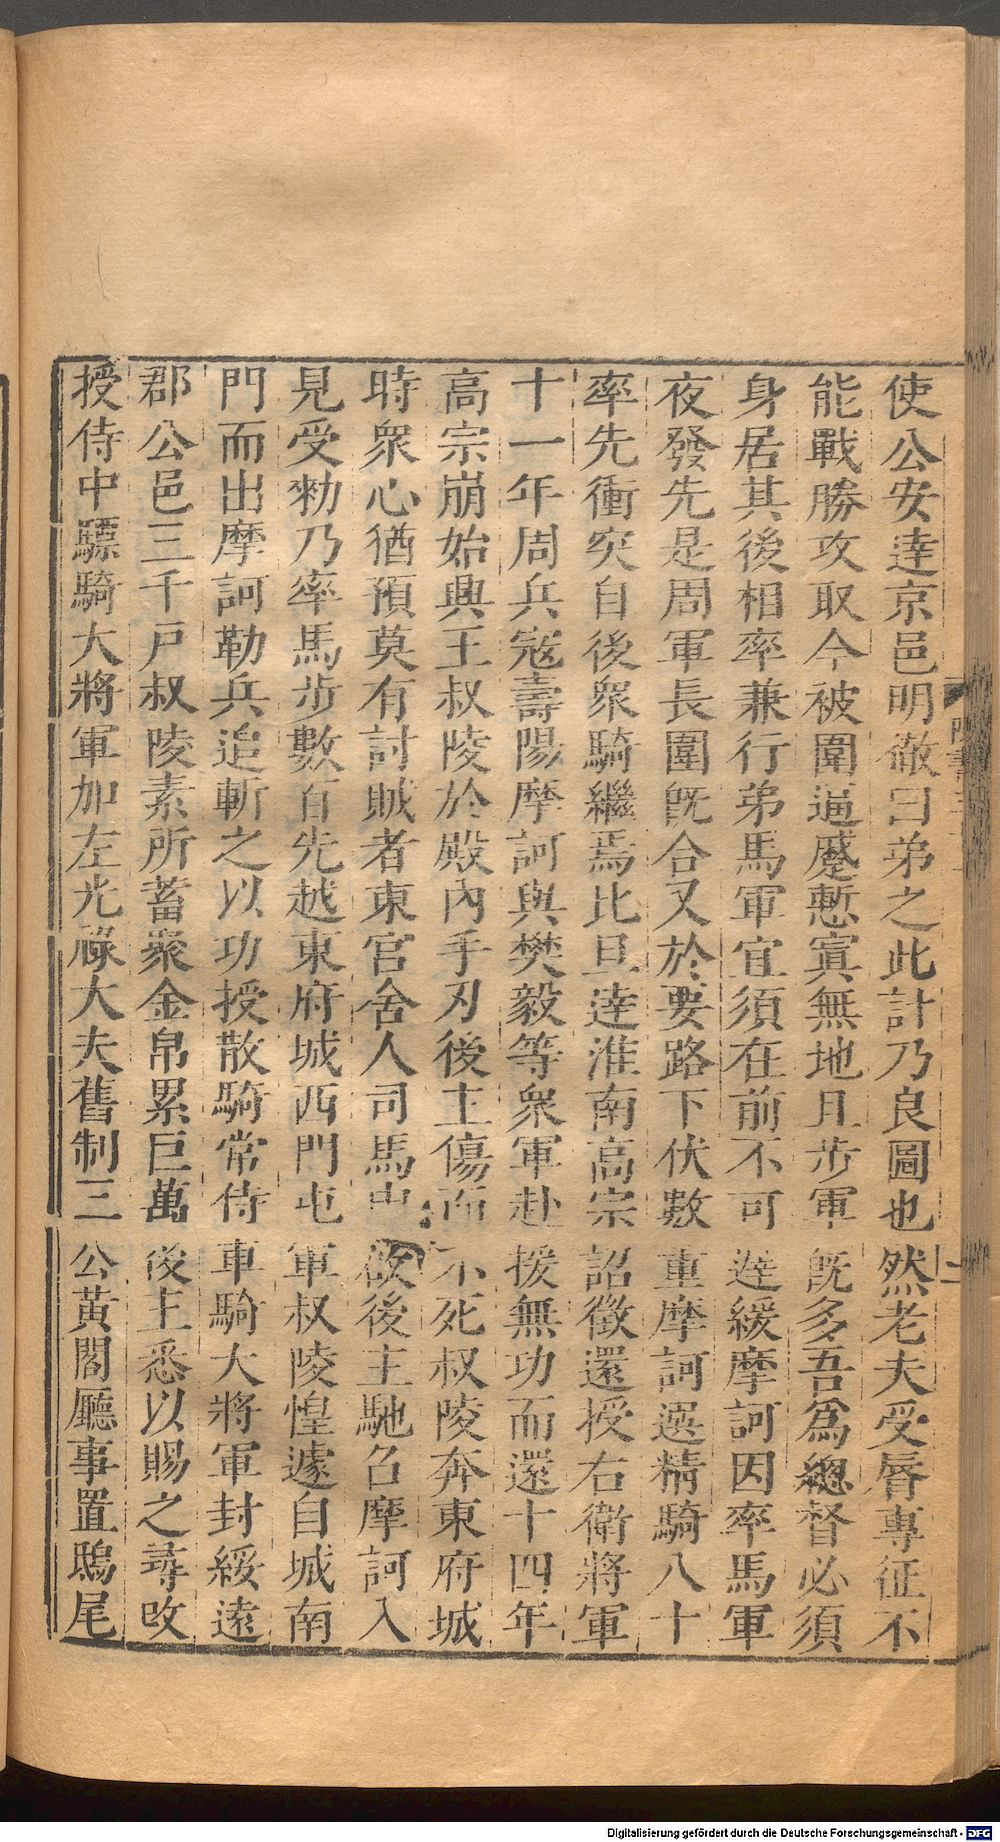 使公安達京邑明徹曰弟之此計乃良圖也然老夫受脤專征不
能戰勝攻取今被圍逼蹙慙寘無地且步軍既多吾爲總督必須
身居其後相率兼行弟馬軍宜須在前不可遲緩摩訶因率馬軍
夜發先是周軍長圍既合又於要路下伏數重摩訶選精騎八十
率先衝突自後衆騎繼焉比旦達淮南高宗詔徵還授右衛將軍
十一年周兵寇壽陽摩訶與樊毅等衆軍赴援無功而還十四年
高宗崩始興王叔陵於殿內手刃後主傷而不死叔陵奔東府城
時衆心猶預莫有討賊者東宮舍人司馬申啟後主馳召摩訶入
見受勑乃率馬步數百先越東府城西門屯軍叔陵惶遽自城南
門而出摩訶勒兵追斬之以功授散騎常侍車騎大將軍封綏遠
郡公邑三千戶叔陵素所蓄聚金帛累巨萬後主悉以賜之尋改
授侍中驃騎大將軍加左光祿大夫舊制三公黃閣廳事置鴟尾
Digitalisierung gefördert durch die Deutsche Forschungsgemeinschaft - DFG